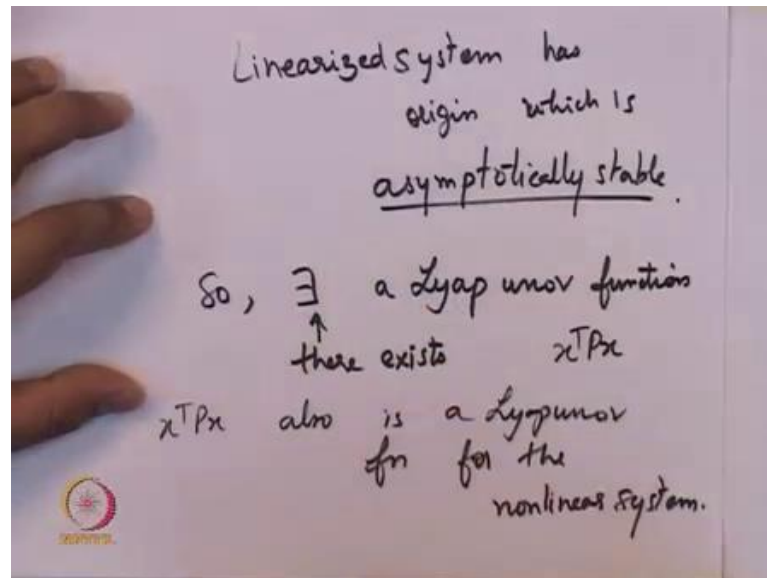 Linearized system has
origin which is
asymptotically stable.
So, ∃ a Lyapunov function
↑
there exists xᵀPx
xᵀPx also is a Lyapunov
fn for the
nonlinear system.